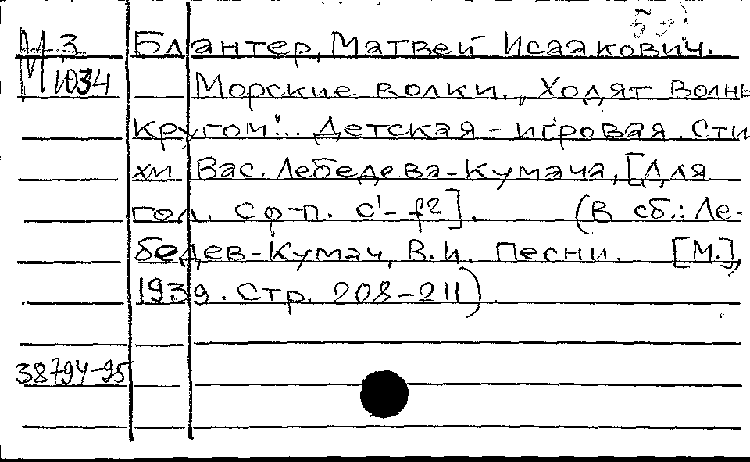 М 3 Блантер, Матвей Исаакович.
М 1034 Морские волки. „Ходят волны
кругом"... Детская - игровая. Сти-
хи Вас. Лебедева-Кумача, [Для
гол. с ф-п. c¹-f²]. (В сб.: Ле-
бедев-Кумач, В.И. Песни. [М.],
1939. Стр. 208-211).
38794-95